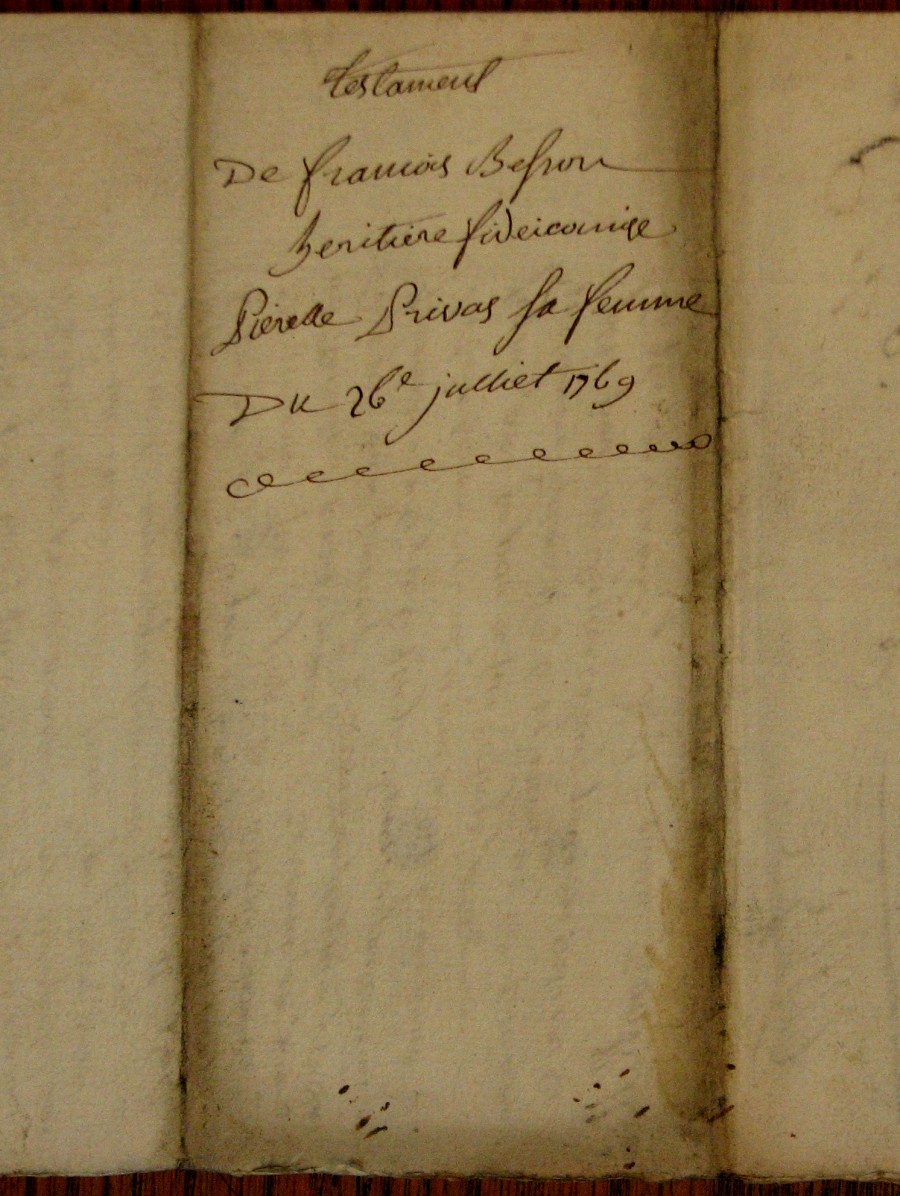 testament
De francois Besson
heritiere fideicomise
Pierette Privas sa femme
Du 26e julliet 1769